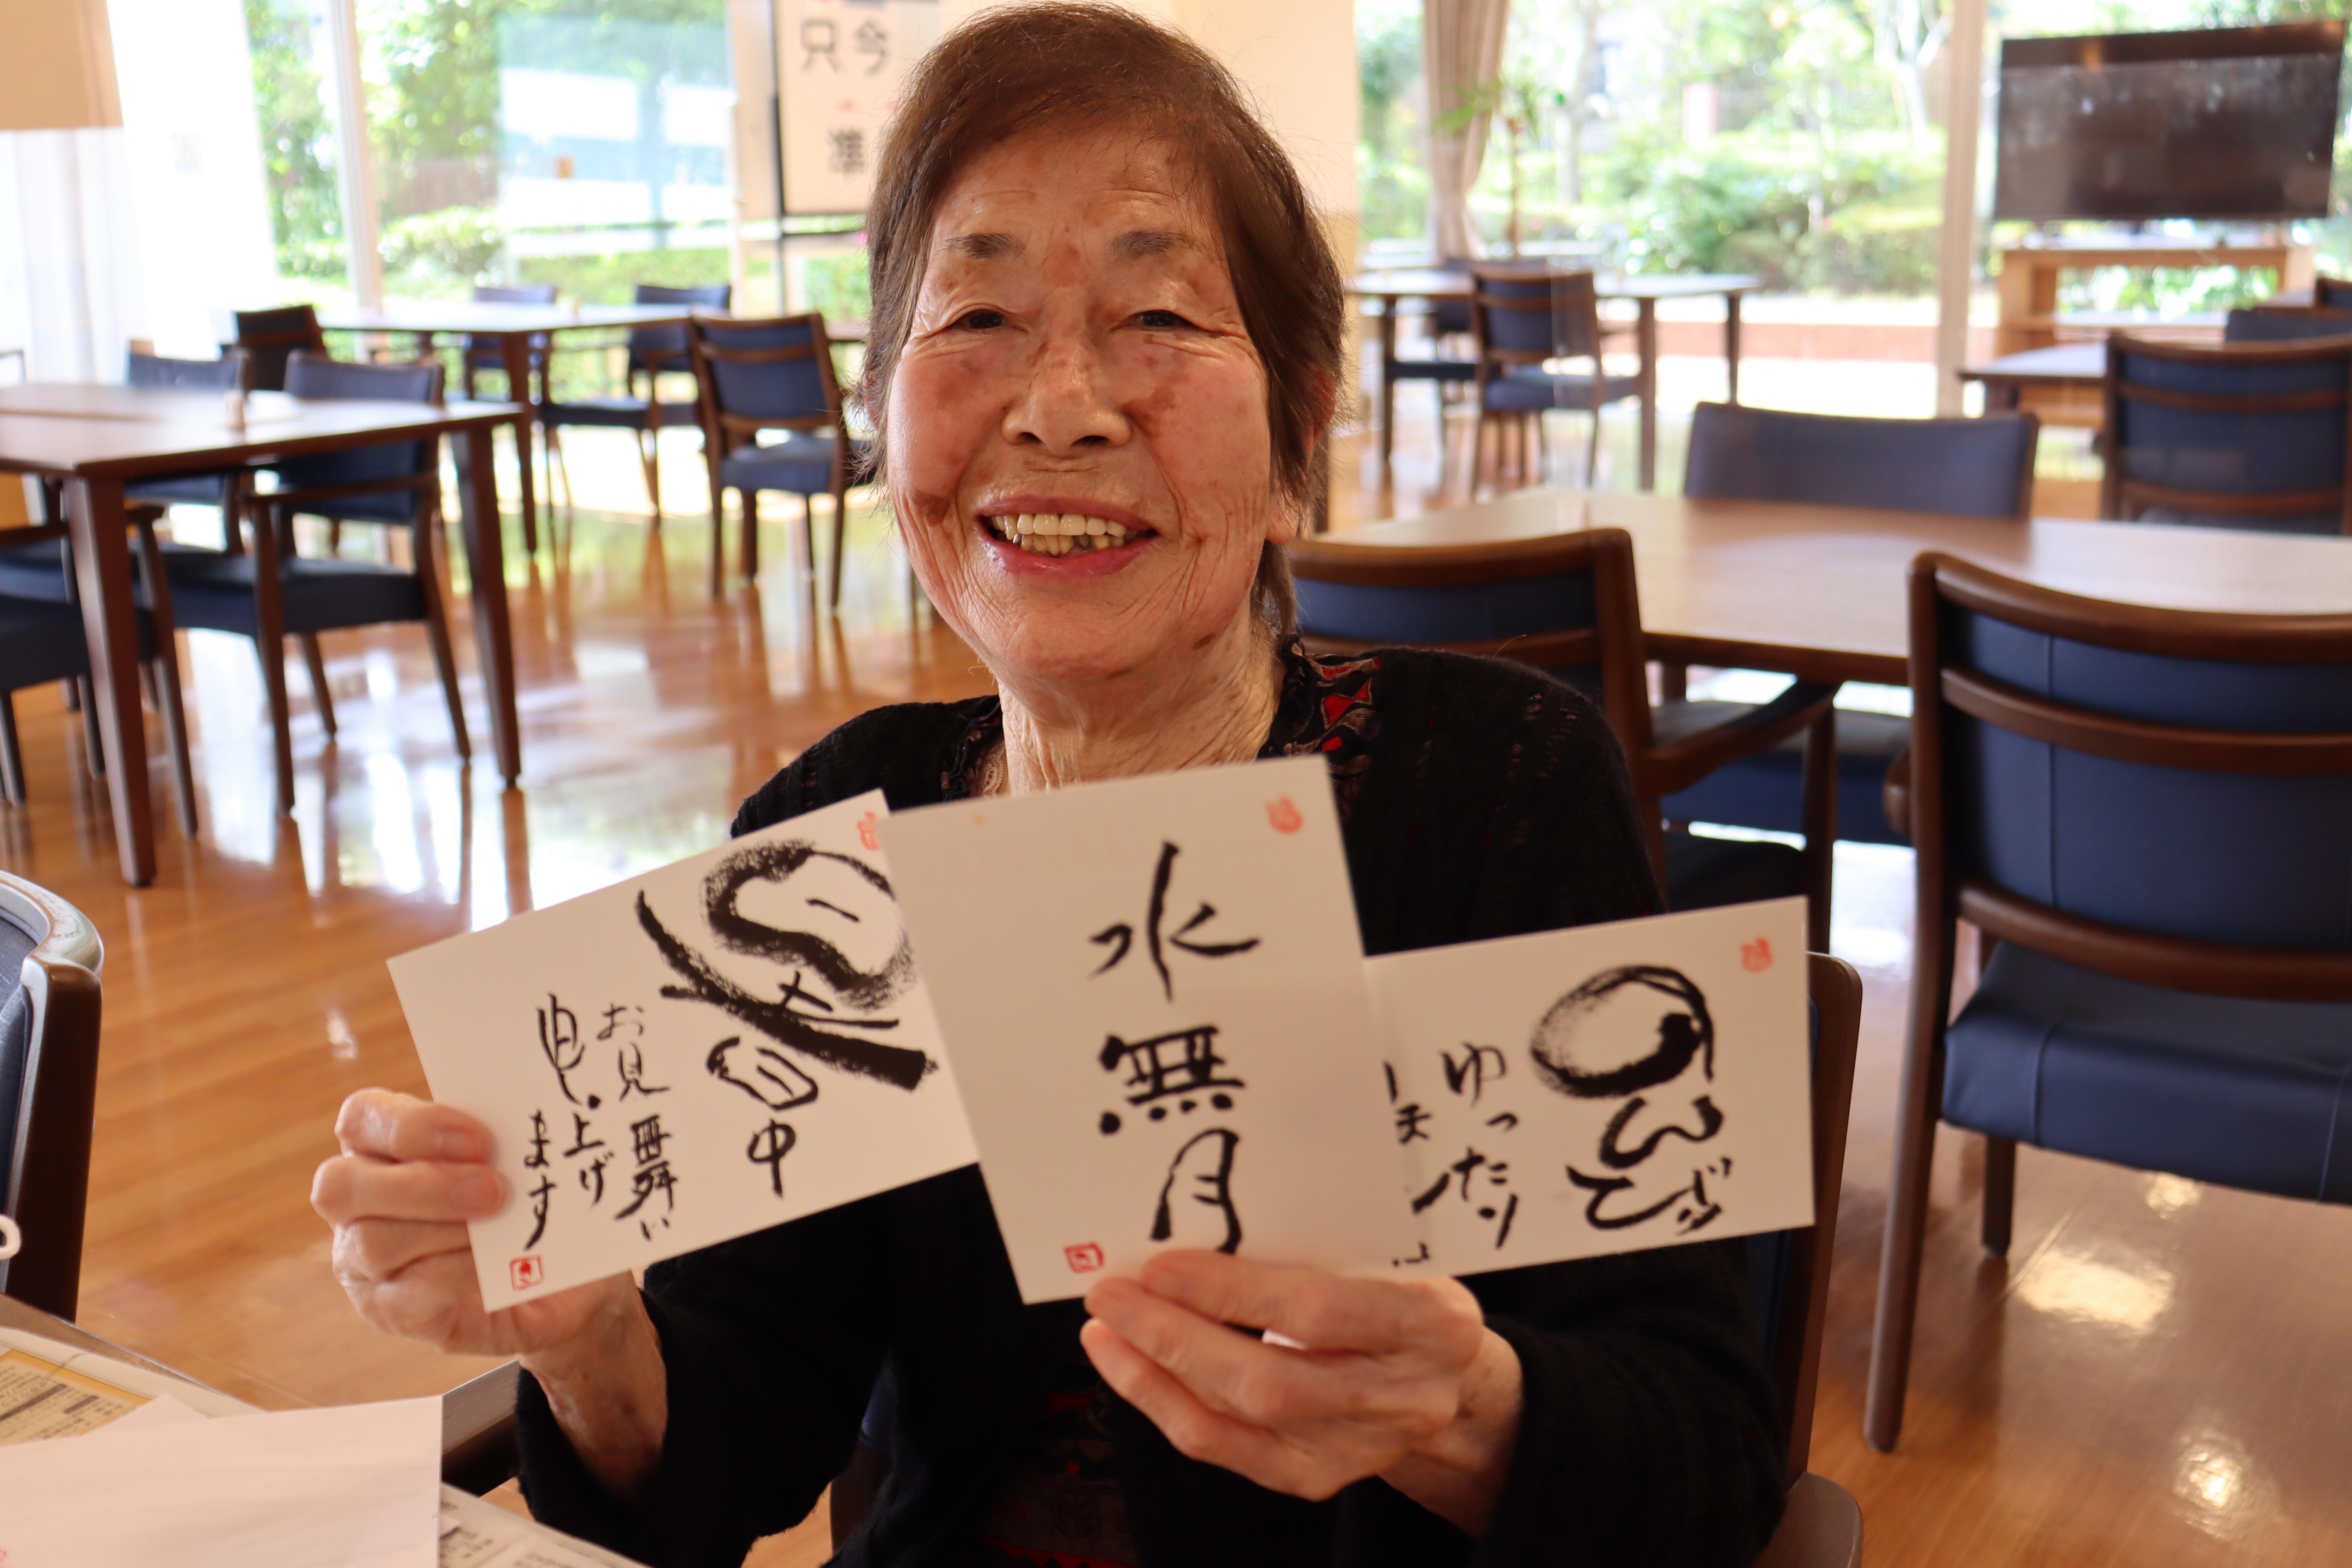 只今
準
暑中
お見舞い
申し上げ
ます
水無月
のんびり
ゆったり